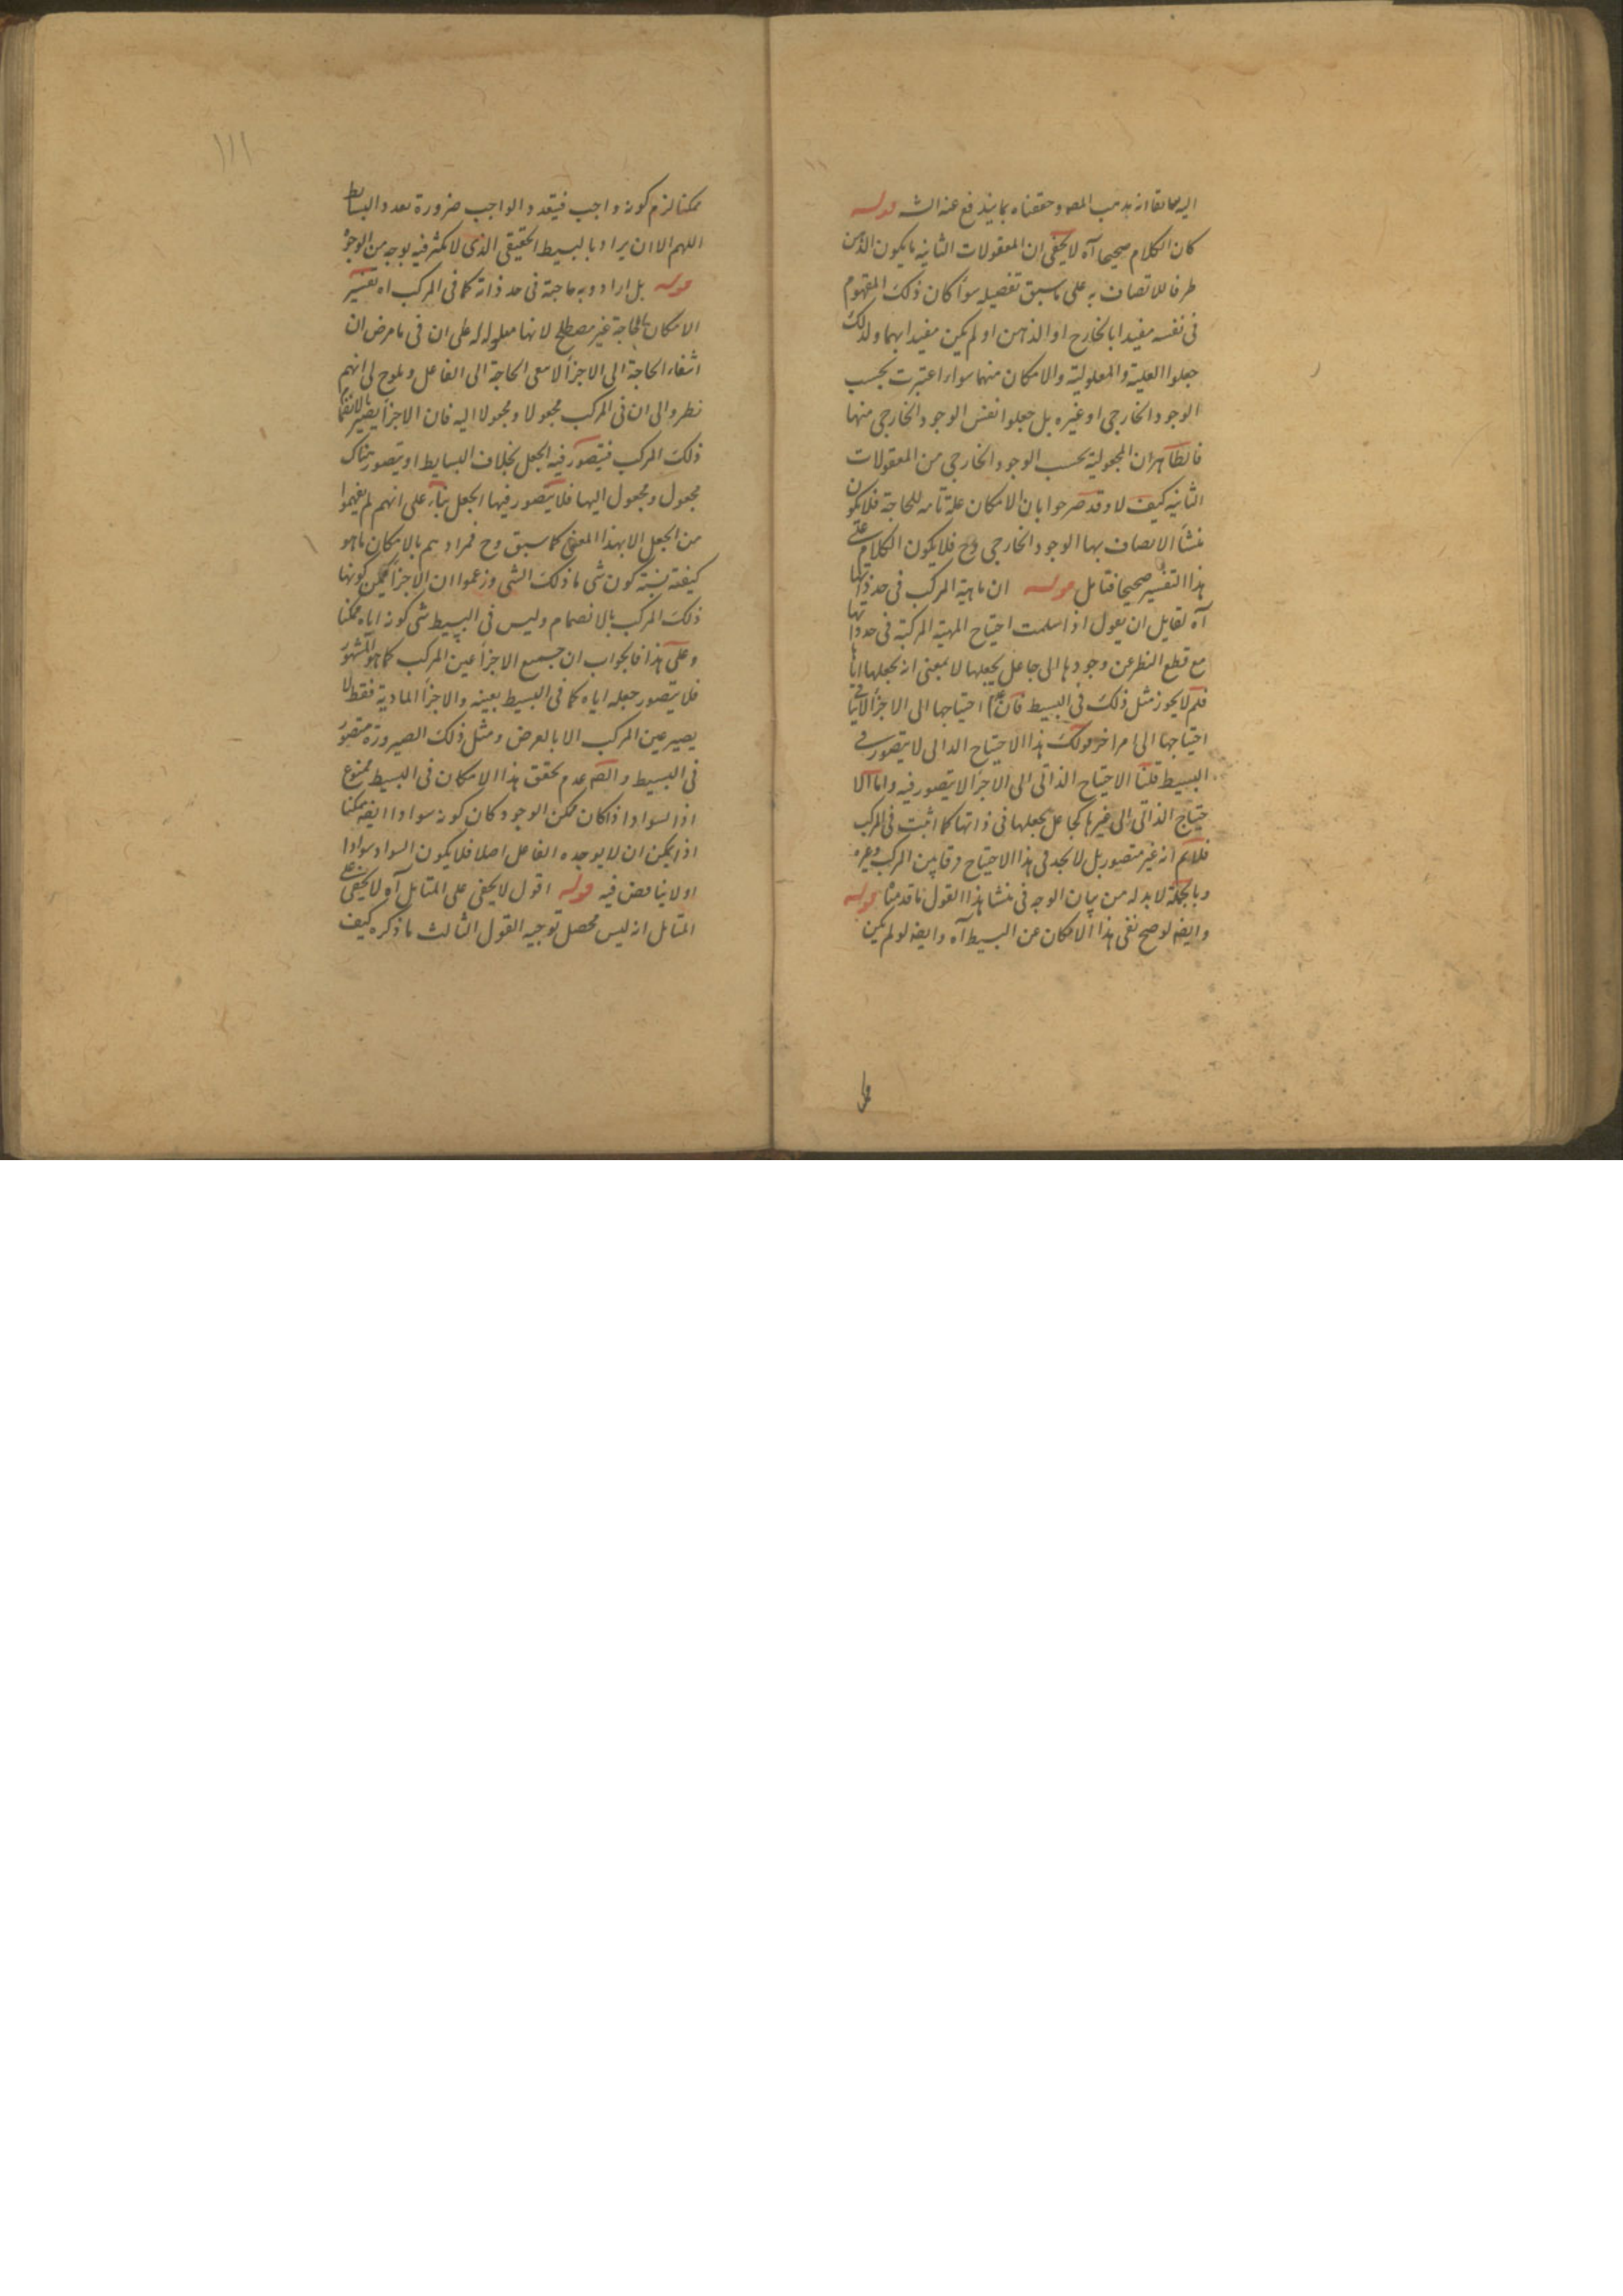 اليه سابقا انه مذهب المصـ وحققناه بما يندفع عنه الشـ قوله
كان الكلام صحيحا آه لا يخفى ان المعقولات الثانية ما يكون الذهن
ظرفا للاتصاف به على ما سبق تفصيله سواء كان ذلك المفهوم
فى نفسه مقيدا بالخارج او الذهن او لم يكن مقيدا بهما ولذلك
جعلوا العلية والمعلولية والامكان منها سواء اعتبرت بحسب
الوجود الخارجى او غيره بل جعلوا نفس الوجود الخارجى منها
فالظاهر ان المجعولية بحسب الوجود الخارجى من المعقولات
الثانية كيف لا وقد صرحوا بان الامكان علة تامه للحاجة فلا يكون
منشأ الاتصاف بها الوجود الخارجى وح فلا يكون الكلام على
هذا التفسير صحيحا فتامل قوله ان ماهية المركب فى حد ذاتها
آه لقايل ان يقول اذا سلمت احتياج المهية المركبة فى حد ذاتها
مع قطع النظر عن وجودها الى جاعل يجعلها لا بمعنى انه يجعلها اياها
فلم لا يجوز مثل ذلك فى البسيط فان احتياجها الى الاجزاء لا ينافى
احتياجها الى امر اخر قولك هذا الاحتياج الذاتى لا يتصور فى
البسيط قلنا الاحتياج الذاتى الى الاجزاء لا يتصور فيه واما الا
حتياج الذاتى الى غيرها كجاعل يجعلها فى ذاتها كما اثبت فى المركب
فلا نم انه غير متصور بل لا نجد فى هذا الاحتياج فرقا بين المركب وغيره
وبالجملة لا بد له من بيان الوجه فى منشا هذا القول ما قدمنا قوله
وايضه لو صح نفى هذا الامكان عن البسيط آه وايضه لو لم يكن
ممكنا لزم كونه واجب فيتعدد الواجب ضرورة تعدد البسايط
اللهم الا ان يراد بالبسيط الحقيقى الذى لا تكثر فيه بوجه من الوجوه
قوله بل ارادوا به حاجته فى حد ذاته كما فى المركب اه تفسير
الامكان بالحاجة غير مصطلح لانها معلولة له على ان فى ما مر ض ان
انتفاء الحاجة الى الاجزاء لا معنى الحاجة الى الفاعل ويلوح لى انهم
نظروا الى ان فى المركب مجعولا ومجعولا اليه فان الاجزاء يصير بالانضمام
ذلك المركب فيتصور فيه الجعل بخلاف البسايط اذ يتصور هناك
مجعول ومجعول اليها فلا يتصور فيها الجعل بناء على انهم لم يفهموا
من الجعل الا بهذا المعنى كما سبق وح فمرادهم بالامكان ما هو
كيفية نسبة كون شى ما ذلك الشى وزعموا ان الاجزاء يمكن كونها
ذلك المركب بالانضمام وليس فى البسيط شى كونه اياه ممكنا
وعلى هذا فالجواب ان جميع الاجزاء عين المركب كما هو المشهور
فلا يتصور جعله اياه كما فى البسيط بعينه والاجزاء المادية فقط لا
يصير عين المركب الا بالعرض ومثل ذلك الصيرورة متصور
فى البسيط وايضه عدم تحقق هذا الامكان فى البسيط ممنوع
اذ السواد اذا كان ممكن الوجود كان كونه سوادا ايضه ممكنا
اذ يمكن ان لا يوجده الفاعل اصلا فلا يكون السواد سوادا
اولا يناقض فيه قوله اقول لا يخفى على المتامل آه لا يخفى على
المتامل انه ليس محصل توجيه القول الثالث ما ذكره كيف